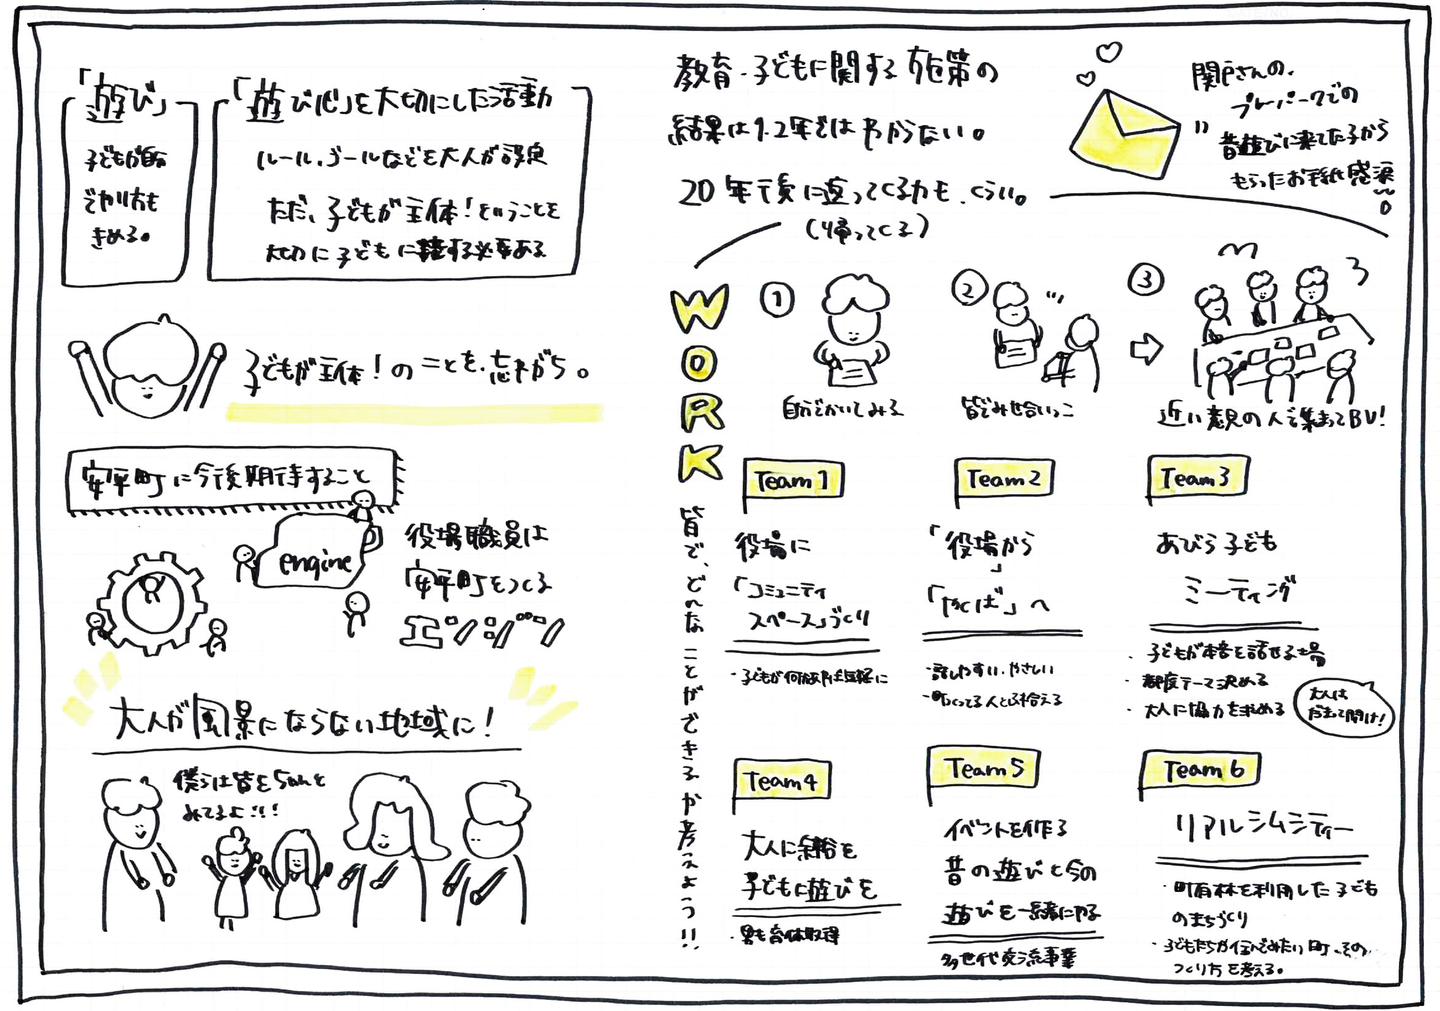 「遊び」
子どもが自分
でやり方も
きめる。
「遊び心」を大切にした活動
ルール、ゴールなどを大人が設定
ただ、子どもが主体！ということを
大切に子どもに接する必要ある
子どもが主体！のことを、忘れがち。
安平町に今後期待すること
engine
役場職員は
安平町をつくる
エンジン
大人が風景にならない地域に！
僕らは皆をちゃんと
みてるよ！！！
教育・子どもに関する施策の
結果は1.2年ではわからない。
20年後に返ってくるかも、くらい。
（帰ってくる）
関戸さんの、
プレーパークでの
昔遊びに来てた子から
もらったお手紙感涙
WORK
皆で、どんなことができるか考えよう！！
①
自分でかいてみる
②
皆でみせ合いっこ
③
近い意見の人で集まってBU！
Team1
役場に
「コミュニティ
スペース」づくり
・子どもが何かあれば気軽に
Team2
「役場から」
「やくば」へ
・話しやすい、やさしい
・町つくってる人と出会える
Team3
あびら子ども
ミーティング
・子どもが本音を話せる場
・都度テーマ決める
・大人に協力を求める
大人は
だまって聞け！
Team4
大人に余裕を
子どもに遊びを
・男も育休取得
Team5
イベントを作る
昔の遊びと今の
遊びを一緒にやる
多世代交流事業
Team6
リアルシムシティー
・町有林を利用した子ども
のまちづくり
・子どもたちが住んでみたい町、その
つくり方を考える。